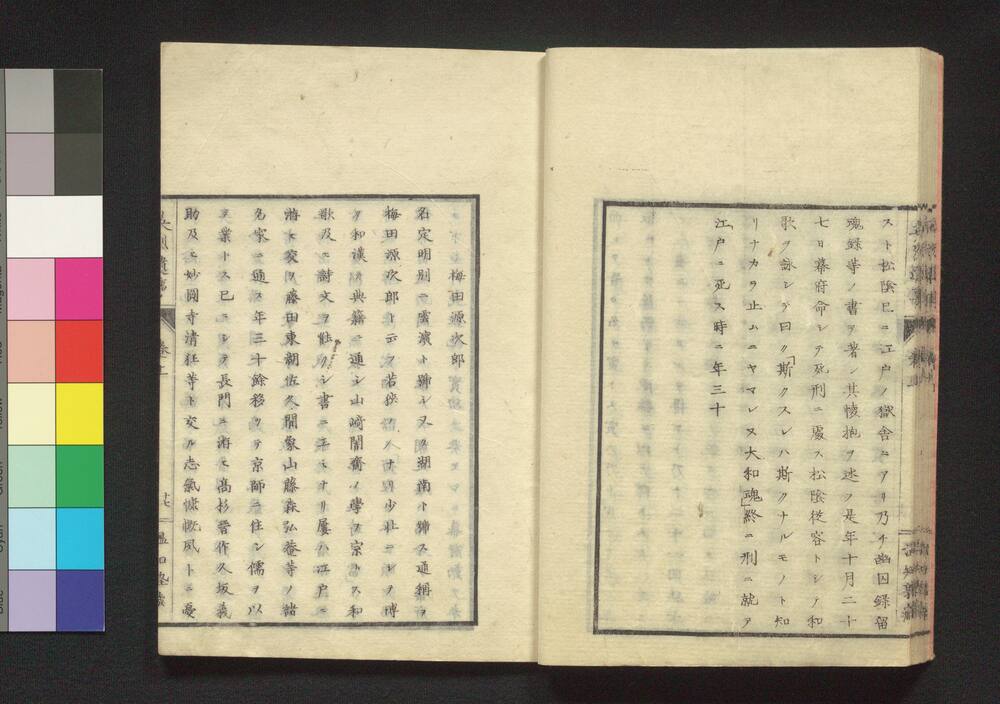 スト松陰巳ニ江戸ノ獄舎ニアリ乃チ幽囚録留
魂録等ノ書ヲ著シ其懐抱ヲ述フ是年十月二十
七日幕府命シテ死刑ニ處ス松陰從容トシテ和
歌ヲ詠シテ曰ク「斯クスレハ斯クナルモノト知
リナカラ止ムニヤマレヌ大和魂」終ニ刑ニ就ク
江戸ニ死ス時ニ年三十
梅田源次郎
名定明別ニ雲濱ト號シ又タ湖南ト號ス通稱ヲ
梅田源次郎ト云フ若狭ノ人ナリ少壮ニシテ博
ク和漢ノ典籍ニ通シ山崎闇齋ノ學ヲ宗トス和
歌及ヒ詩文ヲ能クシ書ニ工ミナリ屢ハ江戸ニ
游ヒ交ヲ藤田東湖佐久間象山藤森弘菴等ノ諸
名家ニ通ス年三十餘移リテ京師ニ住シ儒ヲ以
テ業トス已ニシテ長門ニ游ヒ高杉晋作久坂義
助及ヒ妙圓寺清狂等ト交ル志氣慷慨夙トニ憂